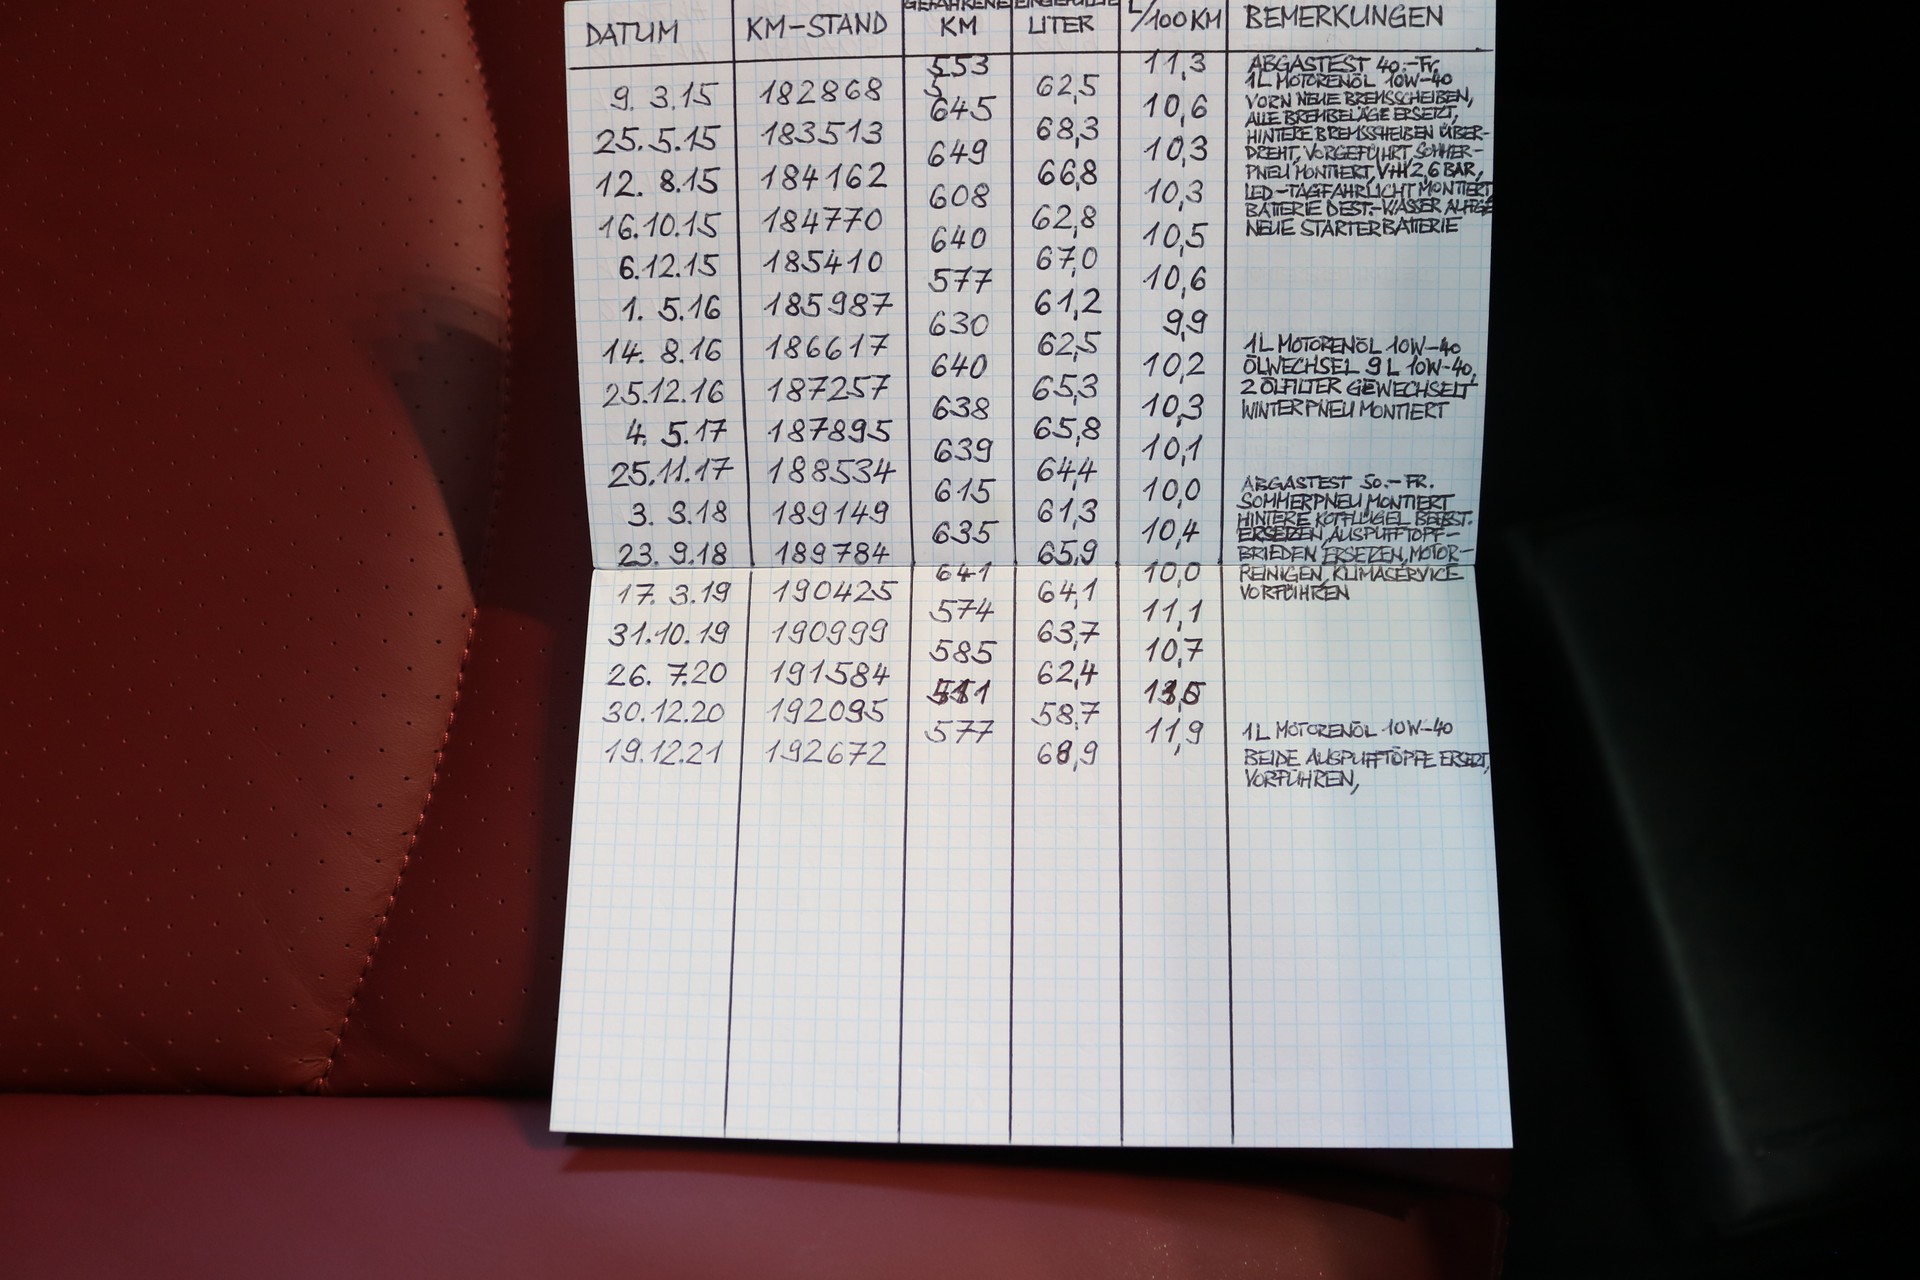 DATUM KM-STAND GEFAHRENE KM EINGEFÜLLTE LITER L/100KM BEMERKUNGEN
553 11,3 ABGASTEST 40.-Fr.
9. 3.15 182868 5 62,5 1L MOTORENÖL 10W-40
645 10,6 VORN NEUE BREMSSCHEIBEN,
ALLE BREMBELÄGE ERSETZT,
25.5.15 183513 68,3 HINTERE BREMSSCHEIBEN ÜBER-
649 10,3 DREHT, VORGEFÜHRT, SOMMER-
12. 8.15 184162 66,8 PNEU MONTIERT, V+H 2,6 BAR,
608 10,3 LED-TAGFAHRLICHT MONTIERT
BATTERIE DEST.-WASSER
16.10.15 184770 62,8 NEUE STARTERBATTERIE
640 10,5
6.12.15 185410 67,0
577 10,6
1. 5.16 185987 61,2
630 9,9
14. 8.16 186617 62,5 1L MOTORENÖL 10W-40
640 10,2 ÖLWECHSEL 9L 10W-40,
25.12.16 187257 65,3 2 ÖLFILTER GEWECHSELT
638 10,3 WINTERPNEU MONTIERT
4. 5.17 187895 65,8
639 10,1
25.11.17 188534 64,4 ABGASTEST 50.-FR.
615 10,0 SOMMERPNEU MONTIERT
3. 3.18 189149 61,3 HINTERE KOTFLÜGEL
635 10,4 ERSETZEN, AUSPUFFTOPF-
23.9.18 189784 65,9 BRIEDEN ERSETZEN, MOTOR-
641 10,0 REINIGEN, KLIMASERVICE
17. 3.19 190425 64,1 VORFÜHREN
574 11,1
31.10.19 190999 63,7
585 10,7
26. 7.20 191584 62,4
511
30.12.20 192095 58,7
577 11,9 1L MOTORENÖL 10W-40
19.12.21 192672 68,9 BEIDE AUSPUFFTÖPFE ERSETZT,
VORFÜHREN,